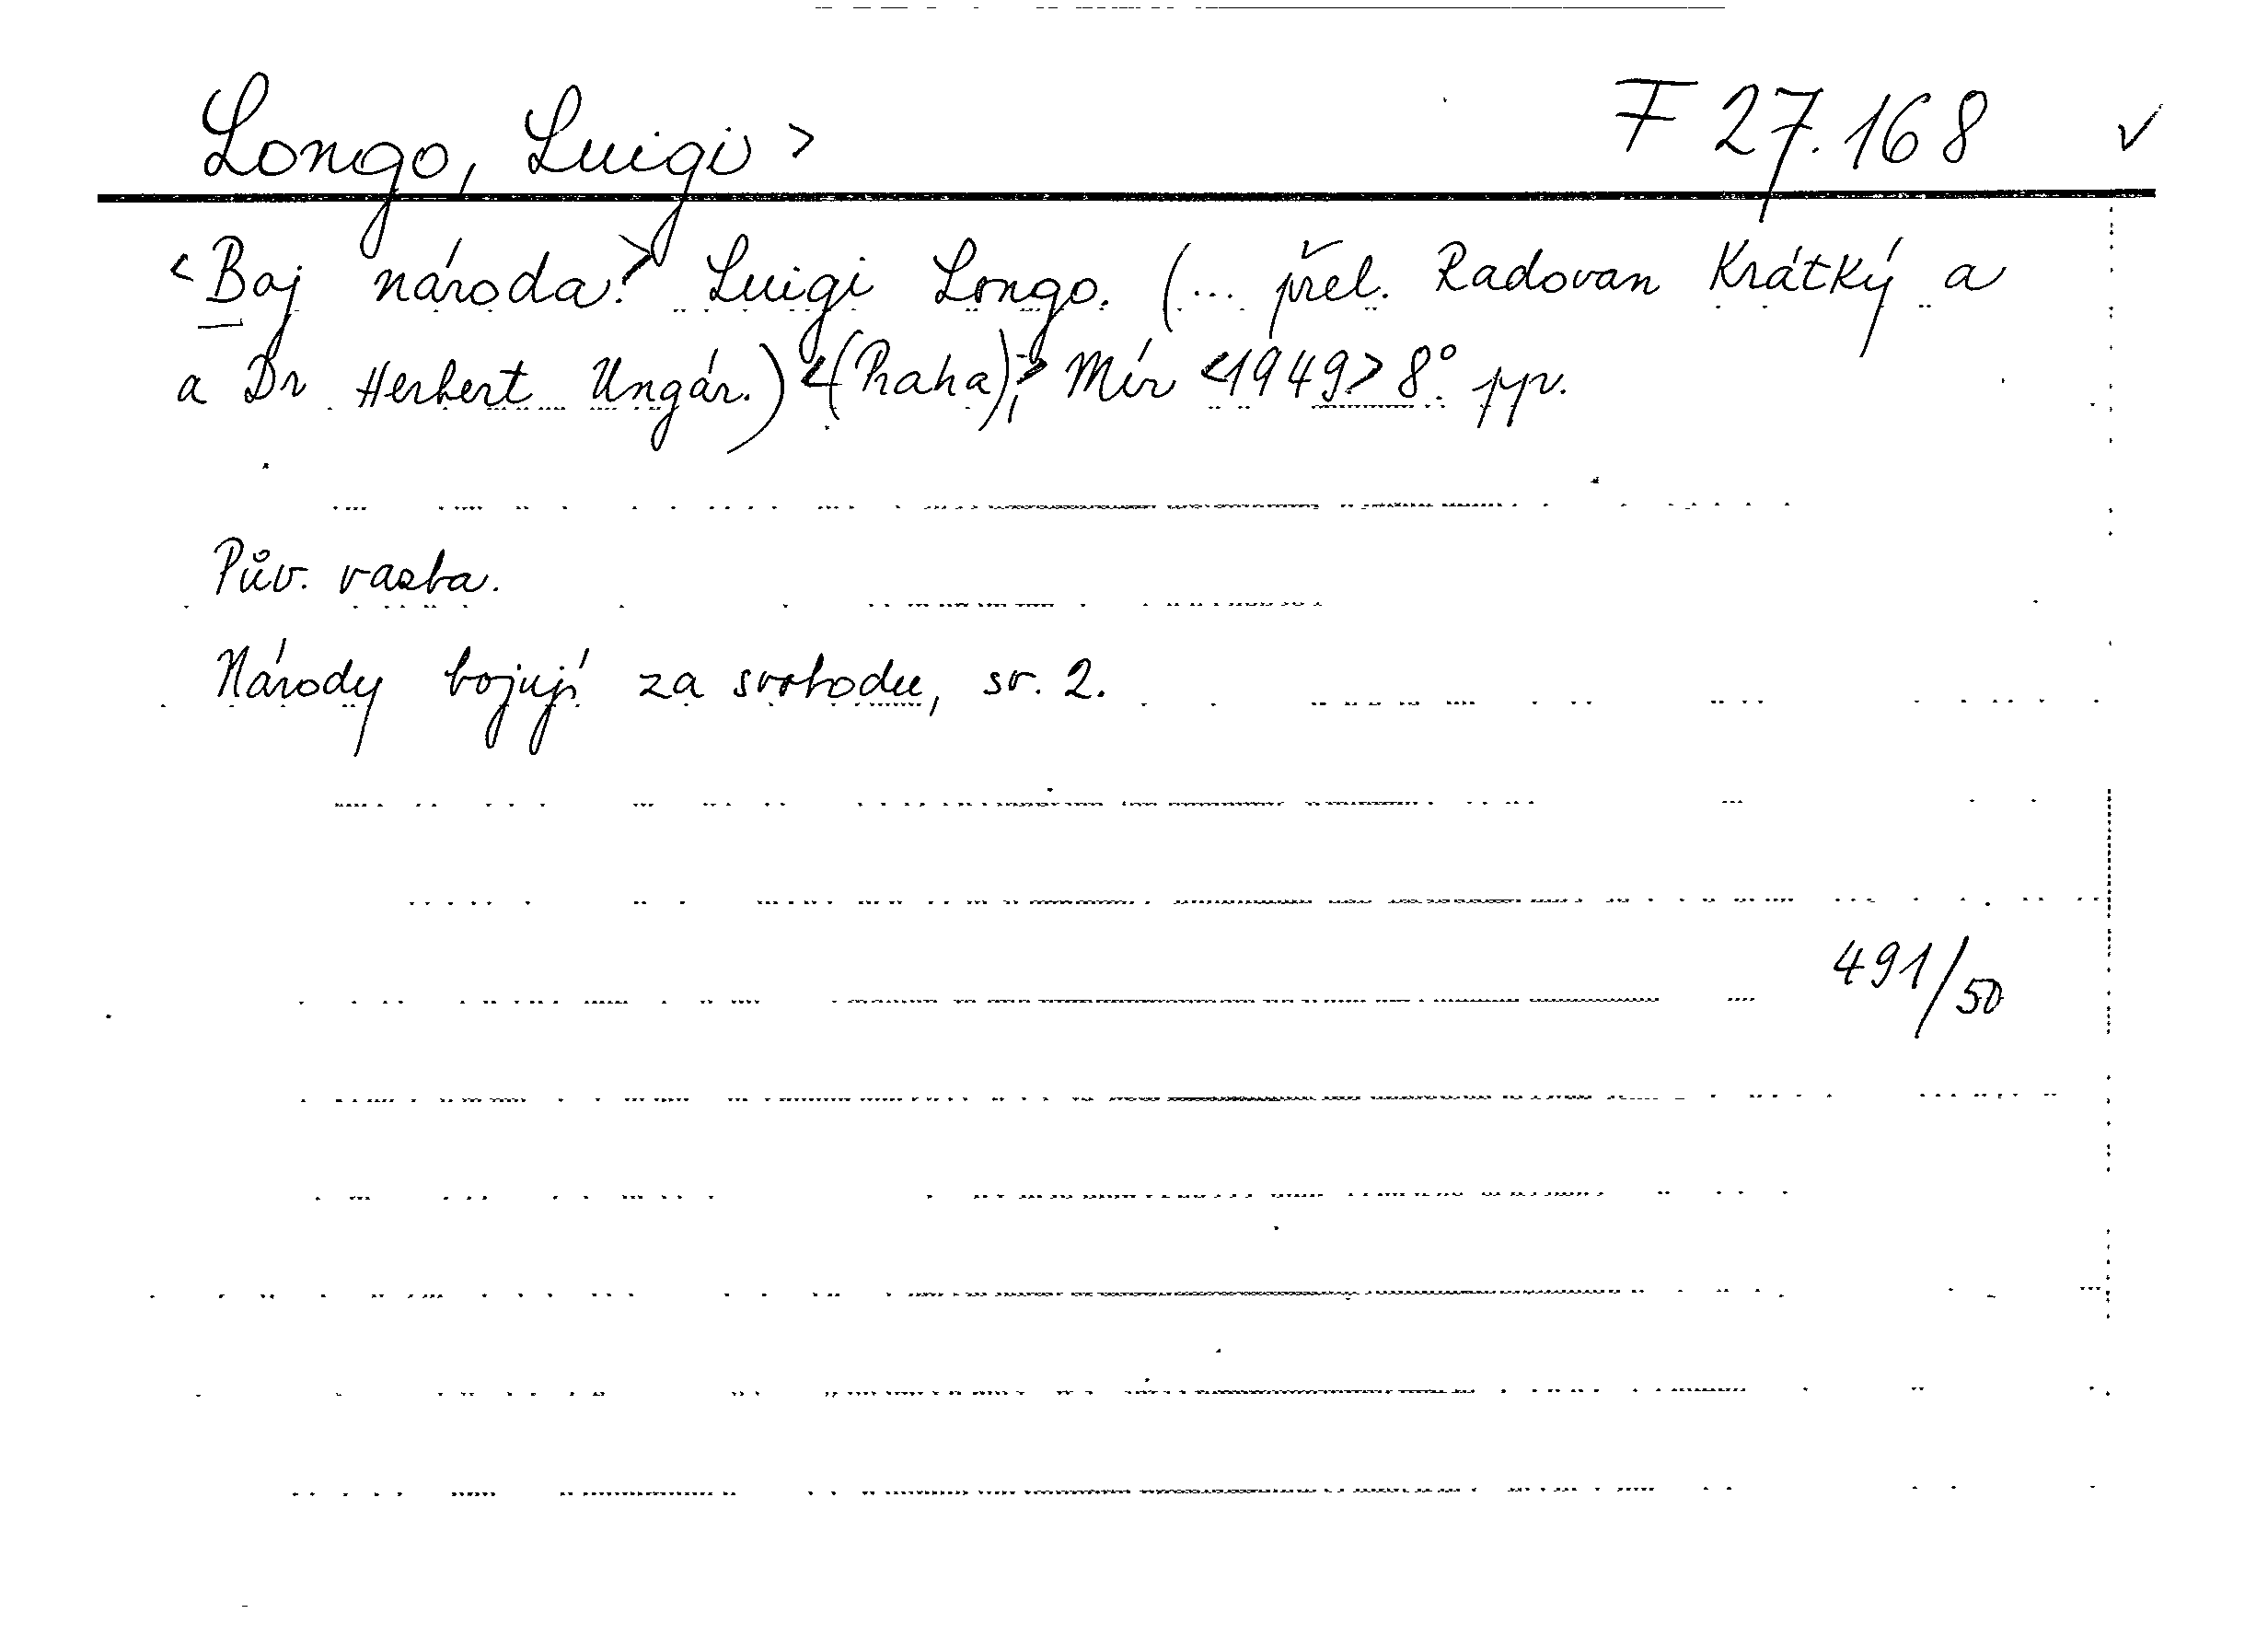 Longo, Luigi > F 27.168 ✓
<Boj národa.> Luigi Longo. (... přel. Radovan Krátký a
a Dr Herbert Ungár.) <(Praha),> Mír <1949> 8°. ppv.
Pův. vazba.
Národy bojují za svobodu, sv. 2.
491/50